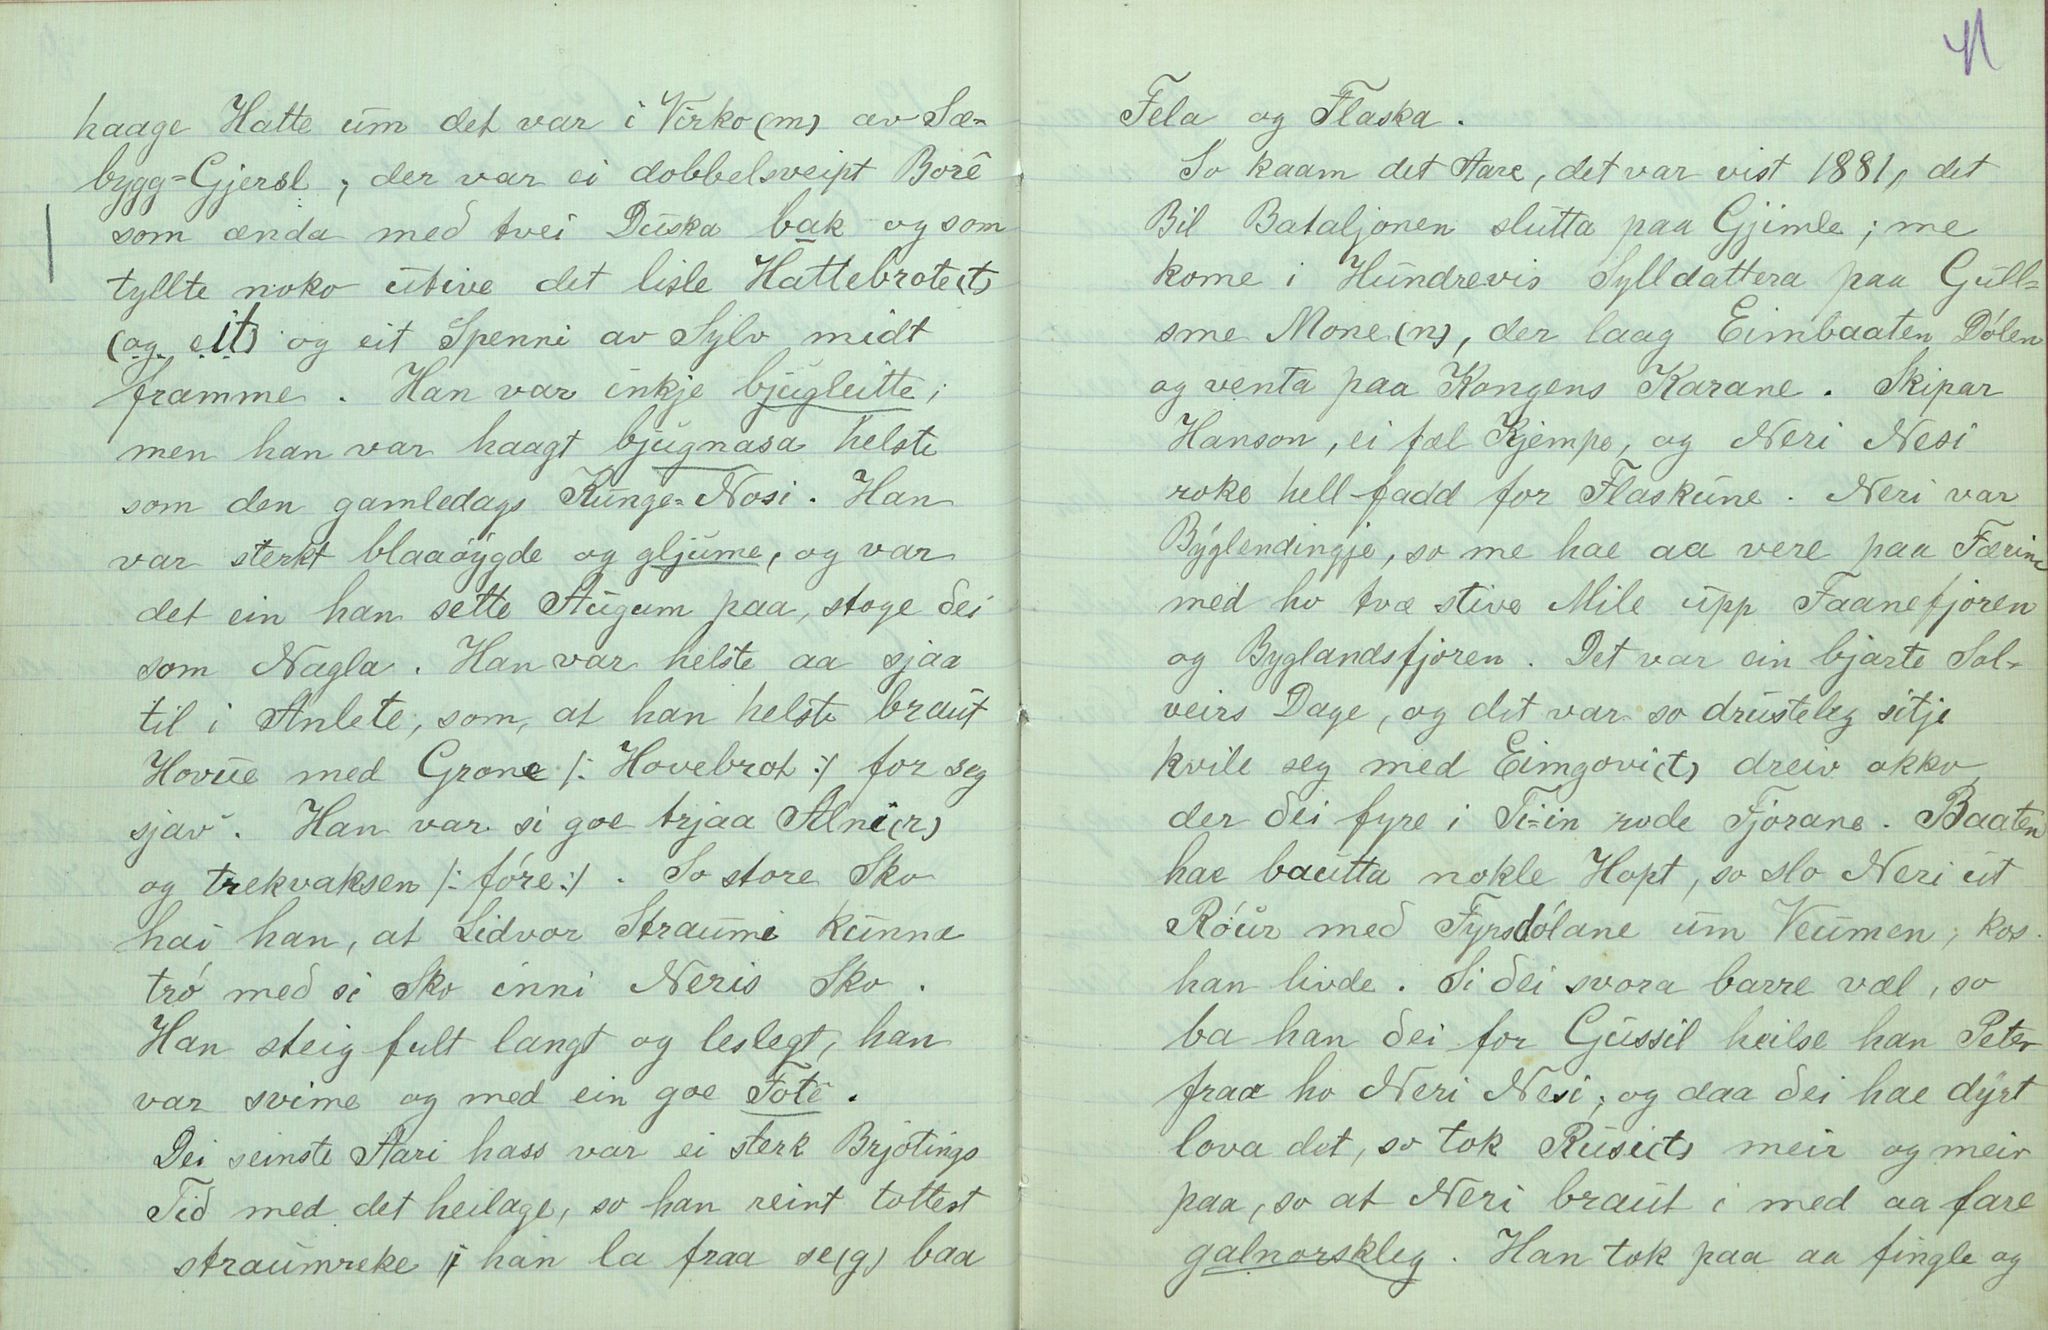 haage Hatte um det var i Virko(m) av Sæ-
bygg-Gjersl, der var ei dobbelsveipt Borê
som ænda med tvei Duska bak og som
tyllte noko utive det lisle Hattebrote(t)
(og eit) og eit Spenni av Sylv midt
framme. Han var inkje bjugleitte;
men han var haagt bjugnasa helste
som den gamledags Kunge-Nosi. Han
var sterkt blaaöygde og gljume, og var
det ein han sette Augum paa, stoge dei
som Nagla. Han var helste aa sjaa
til i Anlete, som, at han helste braut
Hovue med Grone /: Hovebrot :/ for seg
sjav. Han var si goe trjaa Alni(r)
og trekvaksen /: fóre :/. So store Sko
hai han, at Lidvor Straumi kunna
tró med si Sko inni Neris Sko.
Han steig fult langt og leslegt, han
var svime og med ein goe Fotê.
Dei seinste Aari hass var ei sterk Brjotings
Tid med det heilage, so han reint tottest
straumreke i han la fraa se(g) baa
11
Fela og Flaska.
So kaam det Aare, det var vist 1881, det
Bil Bataljonen slutta paa Gjimle; me
kome i Hundrevis Sylldattera paa Gull-
sme Mone(n), der laag Eimbaaten Dólen
og venta paa Kongens Karane. Skipar
Hanson, ei fæl Kjempe, og Neri Nesi
roke hell-fadd for Flaskune. Neri var
Byglendingje, so me hae aa vere paa Færine
med ho tvæ stive Mile upp Faanefjoren
og Byglandsfjoren. Det var ein bjarte Sol-
veirs Dage, og det var so drusteleg sitje
kvile seg med Eimgovi(t) dreiv okko
der dei fyre i Ti-in rode Fjorane. Baaten
hae bautta nokle Hopt, so slo Neri ut
Róur med Fyrsdólane um Veumen, kos
han livde. Si dei svora barre væl, so
ba han dei for Gussil heilse han Peter
fraa ho Neri Nesi, og daa dei hae dyrt
lova det, so tok Rusi(t) meir og meir
paa, so at Neri braut i med aa fare
galnorskleg. Han tok paa aa fingle og